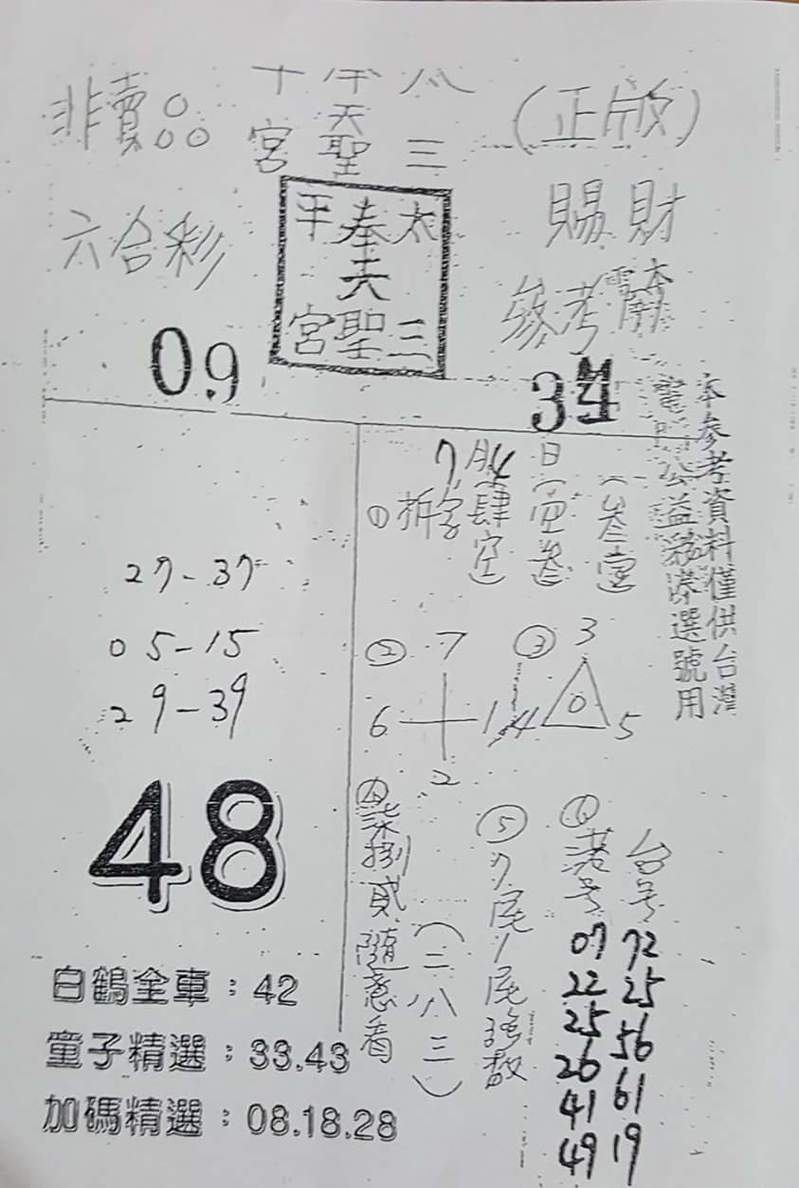 非賣品 (正版)
三天聖宮
六合彩
太平
奉
天
三聖宮
賜財
參考
09
34
本參考資料僅供台灣
電 公益務券選號用
7月4日
① 拆字
肆空
叁
27-37
05-15
29-39
② 7
6 1
2
③ 3
0
4 5
48
④ 柒捌貳隨意看
(二八三)
⑤ 7尾1尾強數
⑥ 港号 台号
07 72
22 25
25 56
26 61
41 19
49
白鶴全車：42
童子精選：33.43
加碼精選：08.18.28